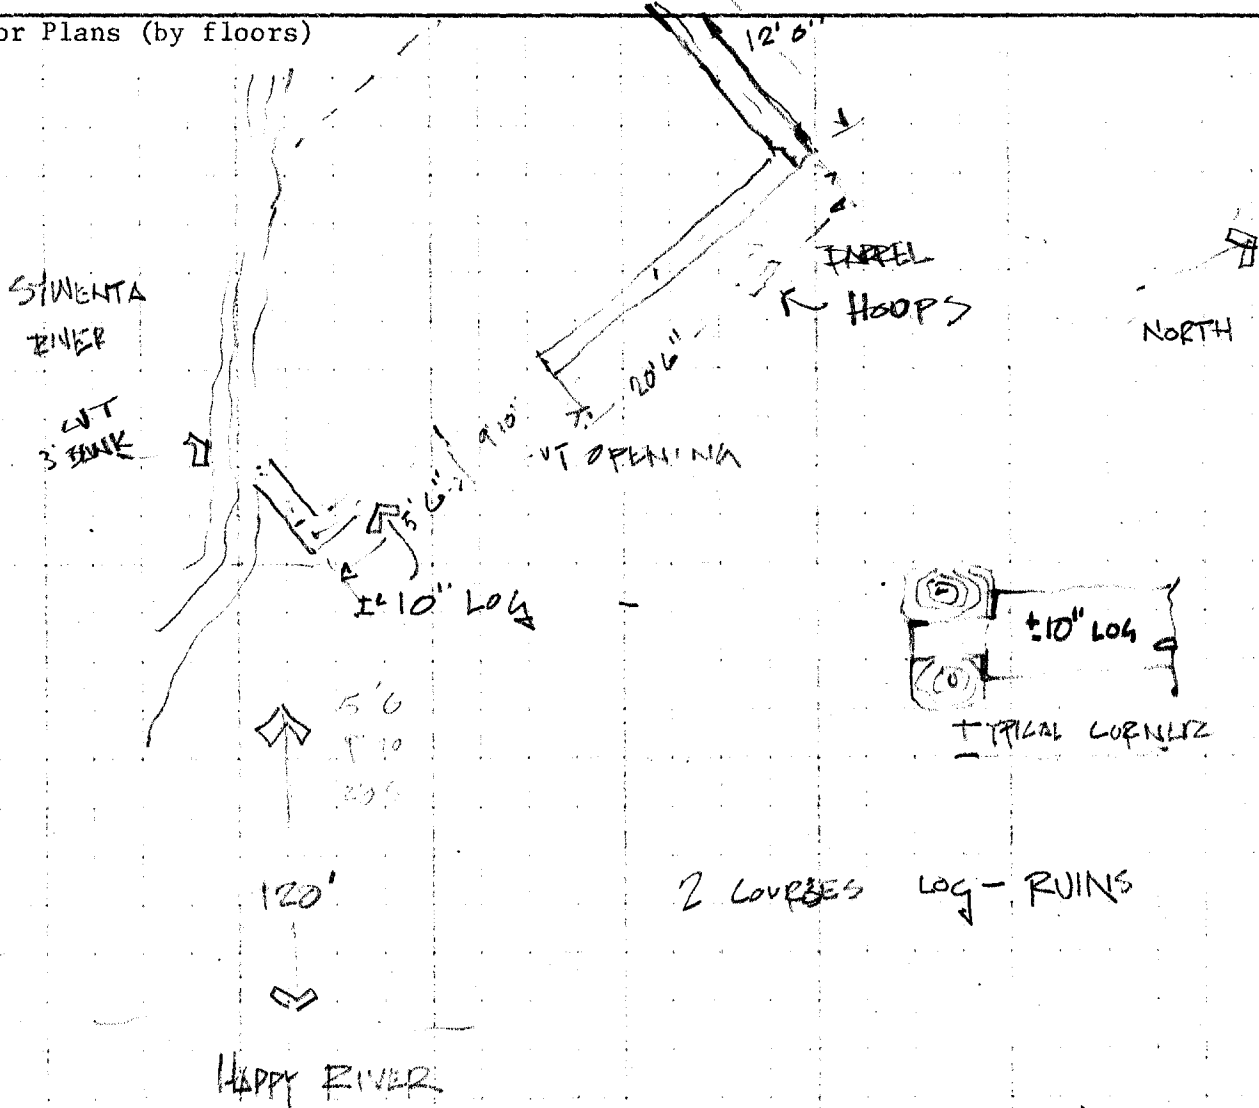 or Plans (by floors)
12' 6"
BARREL
HOOPS
S/WENTA
RIVER
NORTH
CUT
3' BANK
20'6"
9'10"
UT OPENING
5'6"
±10" LOG
±10" LOG
TYPICAL CORNER
5'6
9 10
20 6
120'
2 COURSES LOG - RUINS
HAPPY RIVER